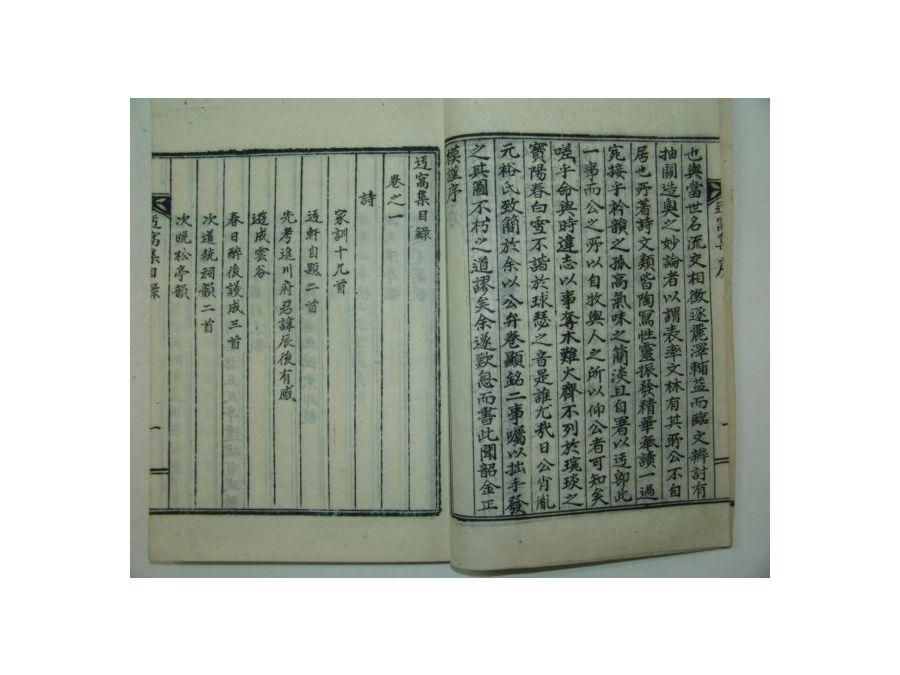 也與當世名流交相徵逐麗澤輔益而臨文辨討有
抽關造奧之妙論者以謂表率文林有其所公不自
居也所著詩文類皆陶寫性靈振發精華奉讀一過
宛接乎衿韻之孤高氣味之簡淡且自署以迃卽此
一事而公之所以自牧與人之所以仰公者可知矣
嗟乎命與時違志以事奪木難火齊不列於琬琰之
寶陽春白雪不諧於球瑟之音是誰尤哉日公肖胤
元裕氏致簡於余以公弁卷顯銘二事囑以拙手發
之其圖不朽之道謬矣余遂歎息而書此聞韶金正
模謹序
迃窩集序
一
迃窩集目錄
卷之一
詩
家訓十九首
迃軒自題二首
先考進川府君諱辰後有感
遊成雲谷
春日醉後謾成三首
次道統祠韻二首
次晩松亭韻
迃窩集目錄
一